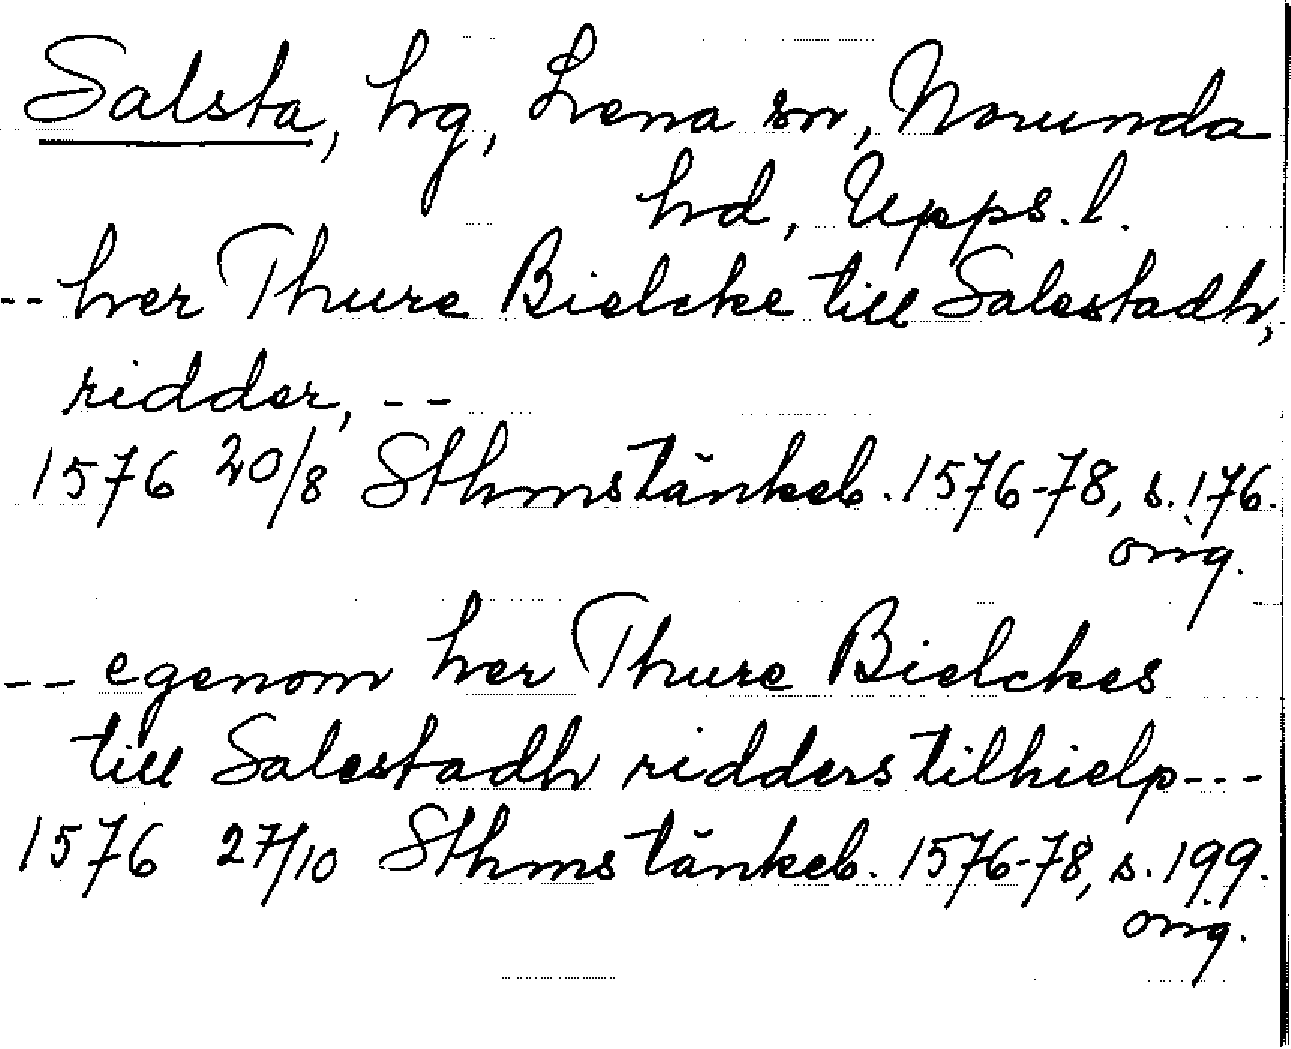 Salsta, hg, Lena sn, Norunda
hd, Upps. l.
-- her Thure Bielcke till Salestadh,
ridder, --
1576 20/8 Sthms tänkeb. 1576-78, s. 176.
orig.
-- egenom her Thure Bielckes
till Salestadh ridders tilhielp ---
1576 27/10 Sthms tänkeb. 1576-78, s. 199.
orig.